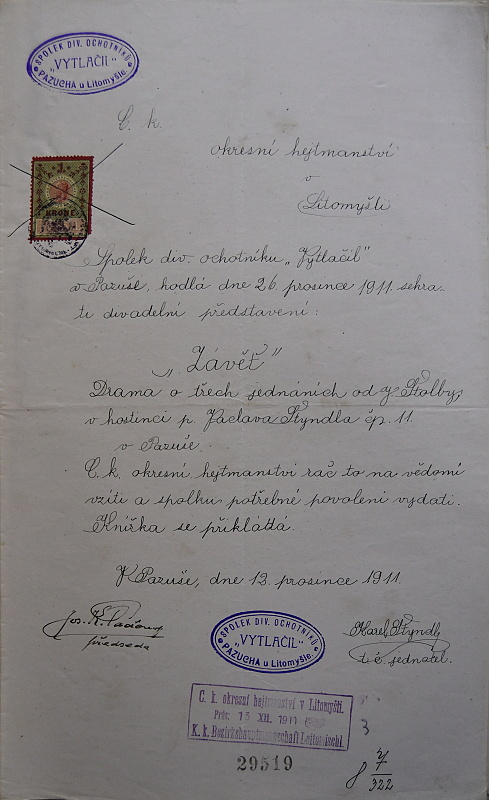 SPOLEK DIV. OCHOTNÍKŮ
"VYTLAČIL"
PAZUCHA u Litomyšle.
C. k.
okresní hejtmanství
v
Litomyšli
1 KRONE
Spolek div. ochotníku „Vytlačil"
v Pazuše, hodlá dne 26. prosince 1911 sehra-
ti divadelní představení:
„Závěť"
Drama o třech jednáních od J. Štolby,
v hostinci p. Václava Štyndla čp. 11.
v Pazuše.
C. k. okresní hejtmanství rač to na vědomí
vzíti a spolku potřebné povolení vydati.
Knížka se přikládá.
V Pazuše, dne 12. prosince 1911.
Jos. K.
předseda
SPOLEK DIV. OCHOTNÍKŮ
"VYTLAČIL"
PAZUCHA u Litomyšle.
Karel Štyndl
t. č. jednatel.
C. k. okresní hejtmanství v Litomyšli.
Präs: 13 XII. 1911
K. k. Bezirkshauptmannschaft Leitomischl.
3
29519
8 4/322